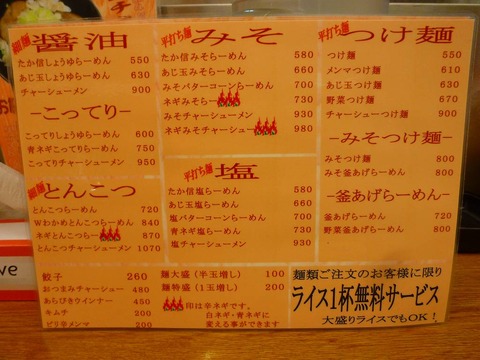 細麺 醤油
たか信しょうゆらーめん 550
あじ玉しょうゆらーめん 630
チャーシューメン 900
-こってり-
こってりしょうゆらーめん 600
青ネギこってりらーめん 750
こってりチャーシューメン 950
細麺 とんこつ
とんこつらーめん 720
Wわかめとんこつらーめん 840
ネギとんこつらーめん 870
とんこつチャーシューメン 1070
平打ち麺 みそ
たか信みそらーめん 580
あじ玉みそらーめん 660
みそバターコーンらーめん 700
ネギみそらーめん 730
みそチャーシューメン 930
ネギみそチャーシューメン 980
平打ち麺 塩
たか信塩らーめん 580
あじ玉塩らーめん 660
塩バターコーンらーめん 700
青ネギ塩らーめん 730
塩チャーシューメン 930
平打ち麺 つけ麺
つけ麺 550
メンマつけ麺 610
あじ玉つけ麺 630
野菜つけ麺 670
チャーシューつけ麺 900
-みそつけ麺-
みそつけ麺 800
みそ釜あげらーめん 800
-釜あげらーめん-
釜あげらーめん 720
野菜釜あげらーめん 800
餃子 260
おつまみチャーシュー 480
あらびきウインナー 450
キムチ 200
ピリ辛メンマ 200
麺大盛(半玉増し) 100
麺特盛(1玉増し) 200
印は辛ネギです。
白ネギ・青ネギに
変える事ができます
麺類ご注文のお客様に限り
ライス1杯無料サービス
大盛りライスでもOK!
ve